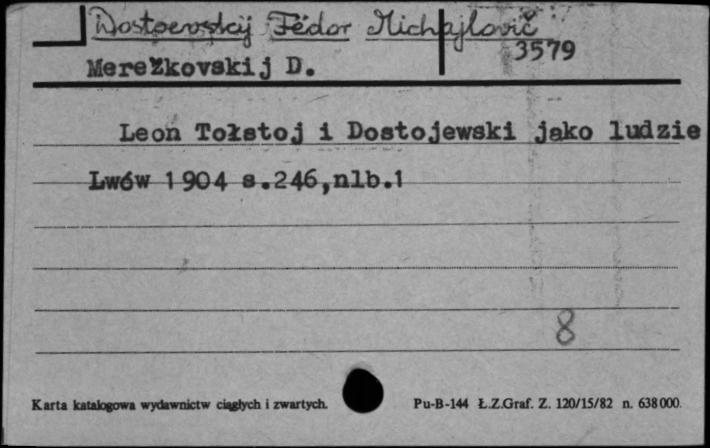 Dostoevskij Fëdor Michajlovič
3579
Merežkovskij D.
Leon Tołstoj i Dostojewski jako ludzie
Lwów 1904 s.246,nlb.1
8
Karta katalogowa wydawnictw ciągłych i zwartych.
Pu-B-144 Ł.Z.Graf. Z. 120/15/82 n. 638000.